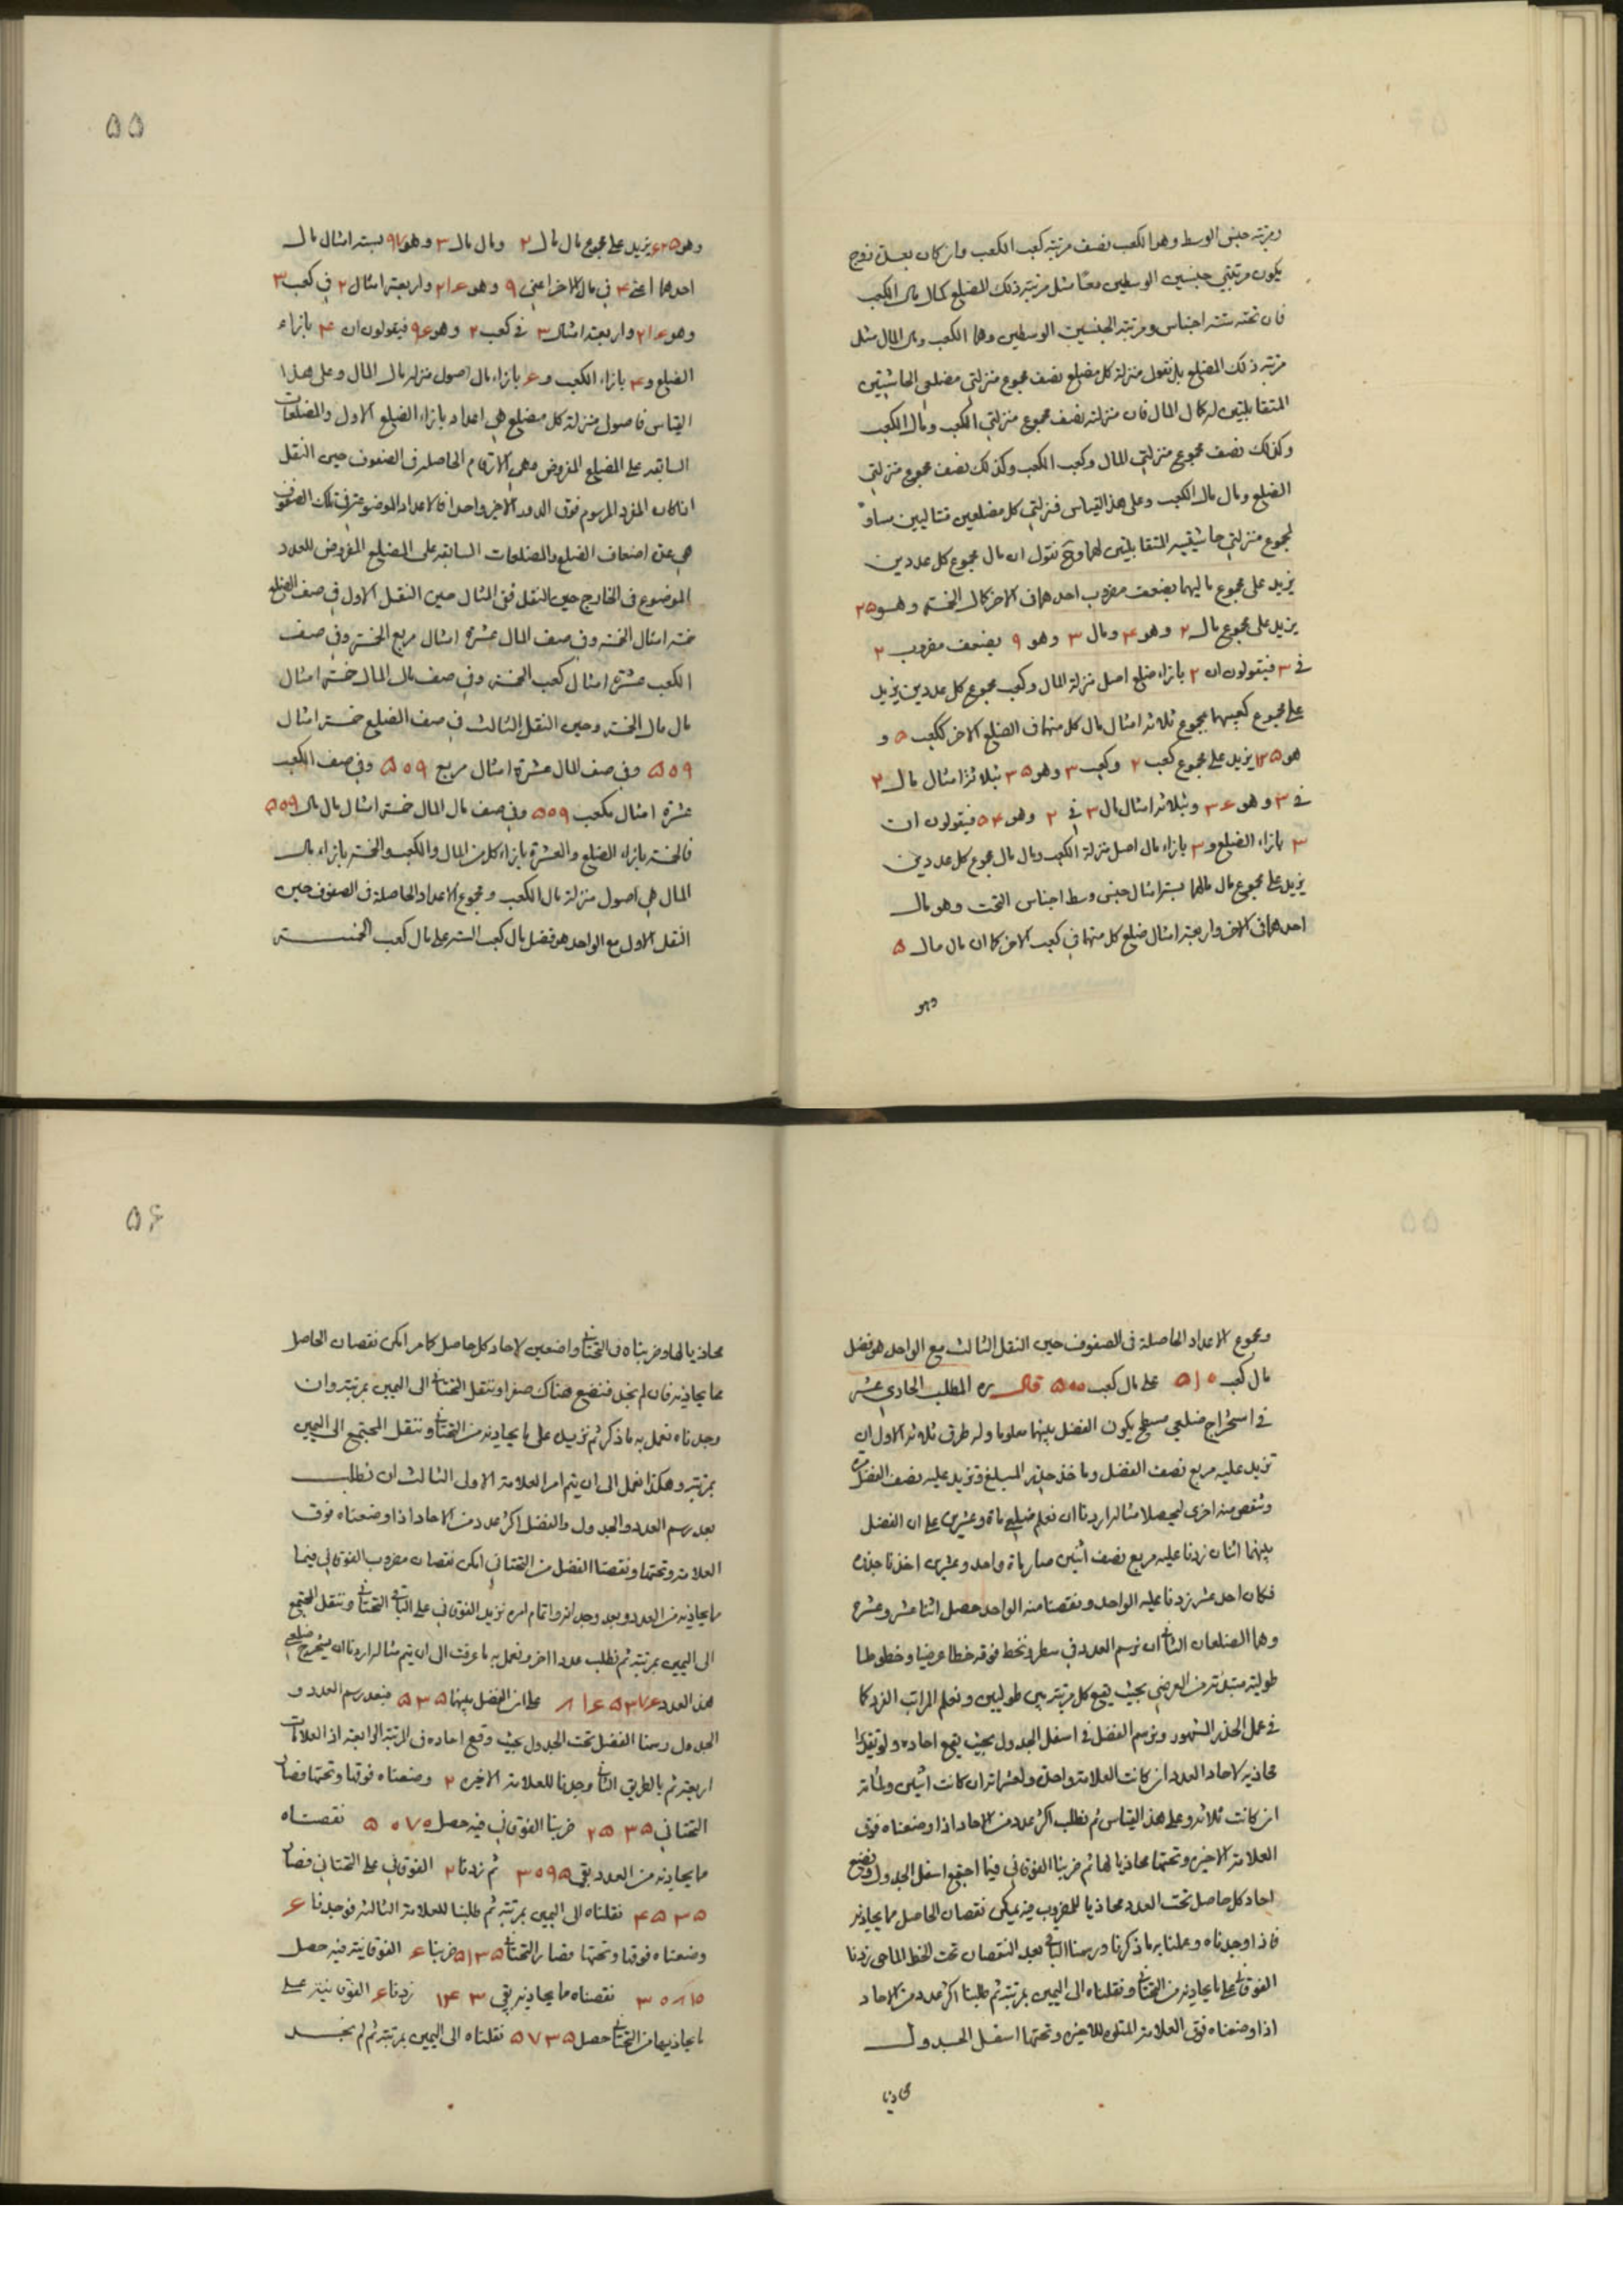 ومرتبة جنس الوسط وهو الكعب نصف مرتبة كعب الكعب وان كان بعدة زوج
يكون مرتبتي جنسين الوسطين معًا مثل مرتبة ذلك المضلع كمال مال الكعب
فان تحته ستة اجناس ومرتبة الجنسين الوسطين وهما الكعب ومال المال مثل
مرتبة ذلك المضلع بل نقول منزلة كل مضلع نصف مجموع منزلتي مضلعي الحاشيتين
المتقابلتين له كمال المال فان منزلته نصف مجموع منزلتي الكعب ومال الكعب
وكذلك نصف مجموع منزلتي المال وكعب الكعب وكذلك نصف مجموع منزلتي
الضلع ومال مال الكعب وعلى هذا القياس فمنزلتي كل مضلعين متتاليين مساو
لمجموع منزلتي حاشيتيه المتقابلتين لهما وح نقول ان مال مجموع كل عددين
يزيد على مجموع ماليهما بضعف مضروب احدهما في الاخر كمال الخمسة وهو ۲۵
يزيد على مجموع مال ۲ وهو ۴ ومال ۳ وهو ۹ بضعف مضروب ۲
في ۳ فيقولون ان ۲ بازاء ضلع اصل منزلة المال وكعب مجموع كل عددين يزيد
على مجموع كعبيهما بمجموع ثلاثة امثال مال كل منهما في الضلع الاخر ككعب ۵ و
هو ۱۲۵ يزيد على مجموع كعب ۲ وكعب ۳ وهو ۳۵ بثلاثة امثال مال ۲
في ۳ وهو ۳۶ وبثلاثة امثال مال ۳ في ۲ وهو ۵۴ فيقولون ان
۳ بازاء الضلع و۳ بازاء مال اصل منزلة الكعب ومال مال مجموع كل عددين
يزيد على مجموع مال مالهما بستة امثال جنس وسط اجناس التحت وهو مال
احدهما في الاخر واربعة امثال ضلع كل منهما في كعب الاخر كما ان مال مال ۵
وهو
۵۵
وهو ۶۲۵ يزيد على مجموع مال مال ۲ ومال مال ۳ وهو ۹۷ بستة امثال مال
احدهما اعني ۴ في مال الاخر اعني ۹ وهو ۲۱۶ واربعة امثال ۲ في كعب ۳
وهو ۲۱۶ واربعة امثال ۳ في كعب ۲ وهو ۹۶ فيقولون ان ۴ بازاء
الضلع و۴ بازاء الكعب و۶ بازاء مال اصول منزلة مال المال وعلى هذا
القياس فاصول منزلة كل مضلع هي اعداد بازاء الضلع الاول والمضلعات
السابقة على المضلع المفروض وهي الارقام الحاصلة في الصفوف حين النقل
اذا كان المفرد المرسوم فوق الدور الاخير واحدا فالاعداد الموضوعة في تلك الصفوف
هي عدة اضعاف الضلع والمضلعات السابقة على المضلع المفروض للعدد
الموضوع في الخارج حين النقل ففي المثال حين النقل الاول في صف الضلع
خمسة امثال الخمسة وفي صف المال عشرة امثال مربع الخمسة وفي صف
الكعب عشرة امثال كعب الخمسة وفي صف مال المال خمسة امثال
مال مال الخمسة وحين النقل الثالث في صف الضلع خمسة امثال
۵۵۹ وفي صف المال عشرة امثال مربع ۵۵۹ وفي صف الكعب
عشرة امثال مكعب ۵۵۹ وفي صف مال المال خمسة امثال مال مال ۵۵۹
فالخمسة بازاء الضلع والعشرة بازاء كل من المال والكعب والخمسة بازاء مال
المال هي اصول منزلة مال الكعب ومجموع الاعداد الحاصلة في الصفوف حين
النقل الاول مع الواحد هو فضل مال كعب الستة على مال كعب الخمسة
ومجموع الاعداد الحاصلة في الصفوف حين النقل الثالث مع الواحد هو فضل
مال كعب ۵۱۰ على مال كعب ۵۰۰ قال ره المطلب الحادي عشر
في استخراج ضلعي مسطح يكون الفضل بينهما معلوما وله طرق ثلاثة الاول ان
تزيد عليه مربع نصف الفضل وتاخذ جذر المبلغ وتزيد عليه نصف الفضل مرة
وتنقص منه اخرى ليحصلا مثاله اردنا ان نعلم ضلعي ماة وعشرين على ان الفضل
بينهما اثنان زدنا عليه مربع نصف اثنين صار ماة واحد وعشرين اخذنا جذره
فكان احد عشر زدنا عليه الواحد ونقصنا منه الواحد حصل اثنا عشر وعشرة
وهما الضلعان الثاني ان نرسم العدد في سطر ونخط فوقه خطا عرضيا وخطوطا
طولية مبتدئة من العرضي بحيث يقع كل مرتبة بين طوليين ونعلم المراتب الفرد كما
في عمل الجذر المشهور ونرسم الفضل في اسفل الجدول بحيث يقع احاده ولو تقديرا
محاذية لاحاد العدد ان كانت العلامة واحدة ولعشراته ان كانت اثنين ولمئاته
ان كانت ثلاثة وعلى هذا القياس ثم نطلب اكثر عدد من الاحاد اذا وضعناه فوق
العلامة الاخيرة وتحتها محاذيا لها ثم ضربنا الفوقاني فيما اجتمع اسفل الجدول ونضع
احاد كل حاصل تحت العدد محاذيا للمضروب فيه يمكن نقصان الحاصل مما يحاذيه
فاذا وجدناه وعملنا به ما ذكرنا ورسمنا الباقي بعد النقصان تحت الخط الماحي زدنا
الفوقاني على ما يحاذيه من التحتاني ونقلناه الى اليمين بمرتبة ثم طلبنا اكثر عدد من الاحاد
اذا وضعناه فوق العلامة المتلوة للاخيرة وتحتها اسفل الجدول
محاذيا
۵۶
محاذيا لها وضربناه في التحتاني واضعين لاحاد كل حاصل كما مر امكن نقصان الحاصل
مما يحاذيه فان لم نجد فنضع هناك صفرا وننقل التحتاني الى اليمين بمرتبة وان
وجدناه نعمل به ما ذكر ثم نزيده على ما يحاذيه من التحتاني وننقل المجتمع الى اليمين
بمرتبة وهكذا نعمل الى ان يتم امر العلامة الاولى الثالث ان نطلب
بعد رسم العدد والجدول والفضل اكثر عدد من الاحاد اذا وضعناه فوق
العلامة وتحتها ونقصنا الفضل من التحتاني امكن نقصان مضروب الفوقاني فيما
مما يحاذيه من العدد وبعد وجدانه واتمام امره نزيد الفوقاني على الباقي التحتاني وننقل المجتمع
الى اليمين بمرتبة ثم نطلب عددا اخر ونعمل به ما عرفت الى ان يتم مثاله اردنا ان نستخرج ضلعي
هذا العدد على ان الفضل بينهما ۵۳۵ فبعد رسم العدد و
الجدول رسمنا الفضل تحت الجدول بحيث وقع احاده في المرتبة الرابعة اذ العلامات
اربعة ثم بالطريق الثاني وجدنا للعلامة الاخيرة ۲ وضعناه فوقها وتحتها فصار
التحتاني ۲۵۳۵ ضربنا الفوقاني فيه حصل ۵۰۷۰ نقصناه
مما يحاذيه من العدد بقي ۳۰۹۵ ثم زدنا ۲ الفوقاني على التحتاني فصار
۴۵۳۵ نقلناه الى اليمين بمرتبة ثم طلبنا للعلامة الثالثة فوجدنا ۶
وضعناه فوقها وتحتها فصار التحتاني ۵۱۳۵ ضربنا ۶ الفوقانية فيه حصل
۳۰۸۱۰ نقصناه مما يحاذيه بقي ۱۴۳ زدنا ۶ الفوقانية على
ما يحاذيها من التحتاني حصل ۵۷۳۵ نقلناه الى اليمين بمرتبة ثم لم نجد